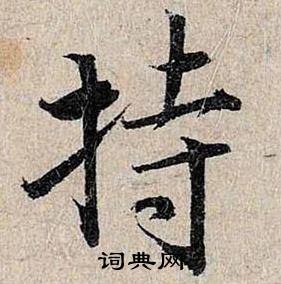 持
词典网